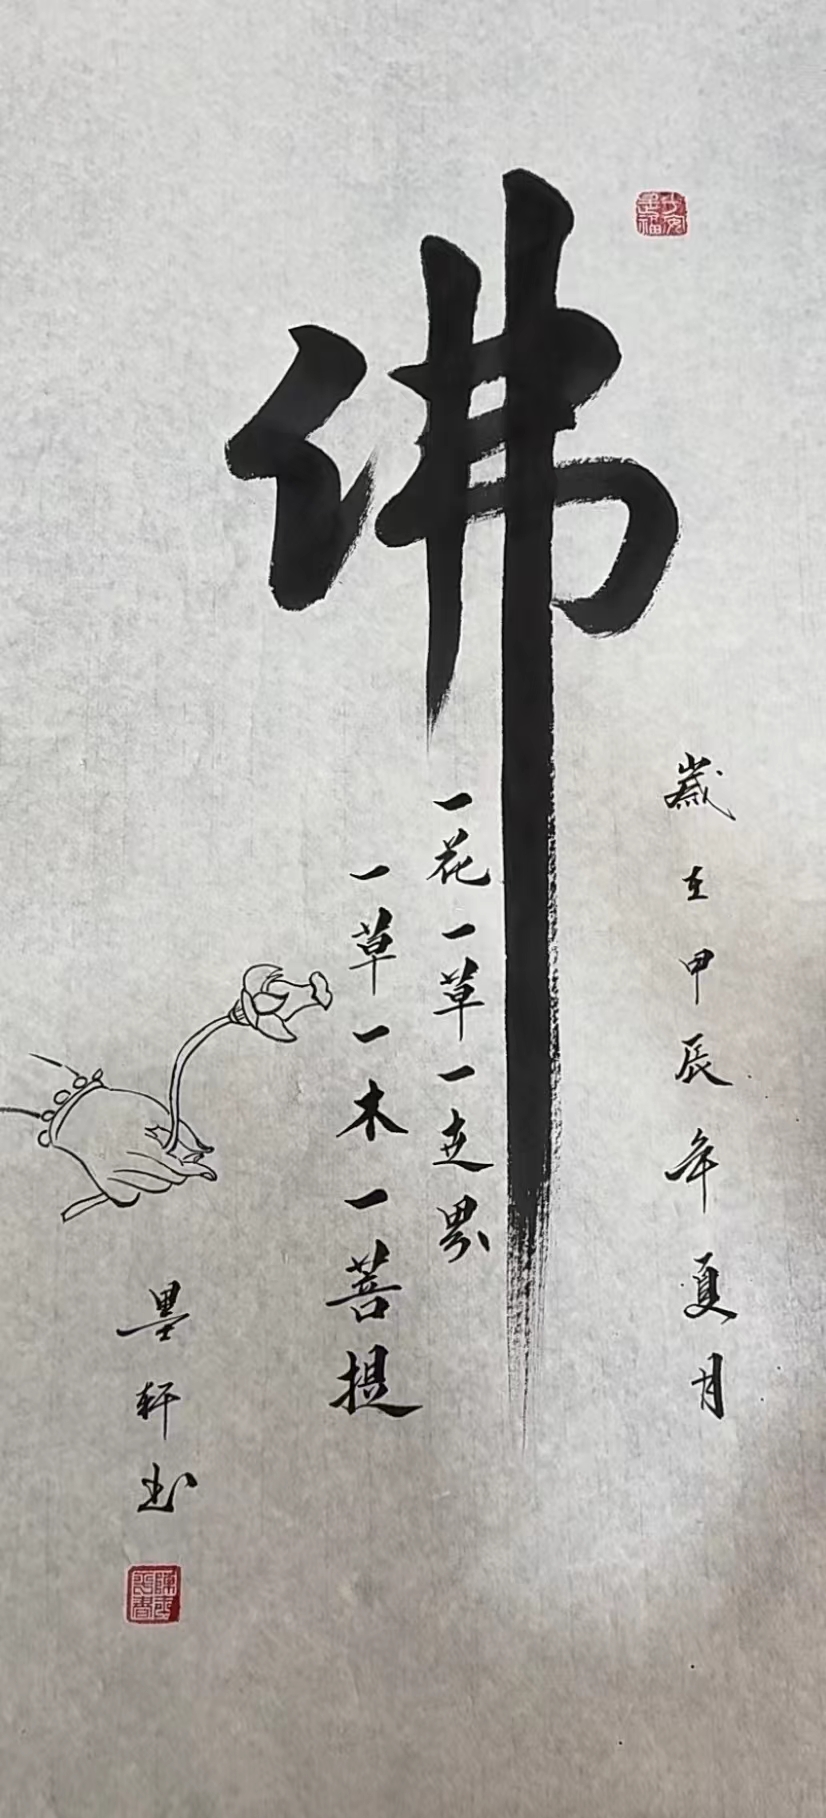 佛
歲在甲辰年夏月
一花一草一世界
一草一木一菩提
墨轩书